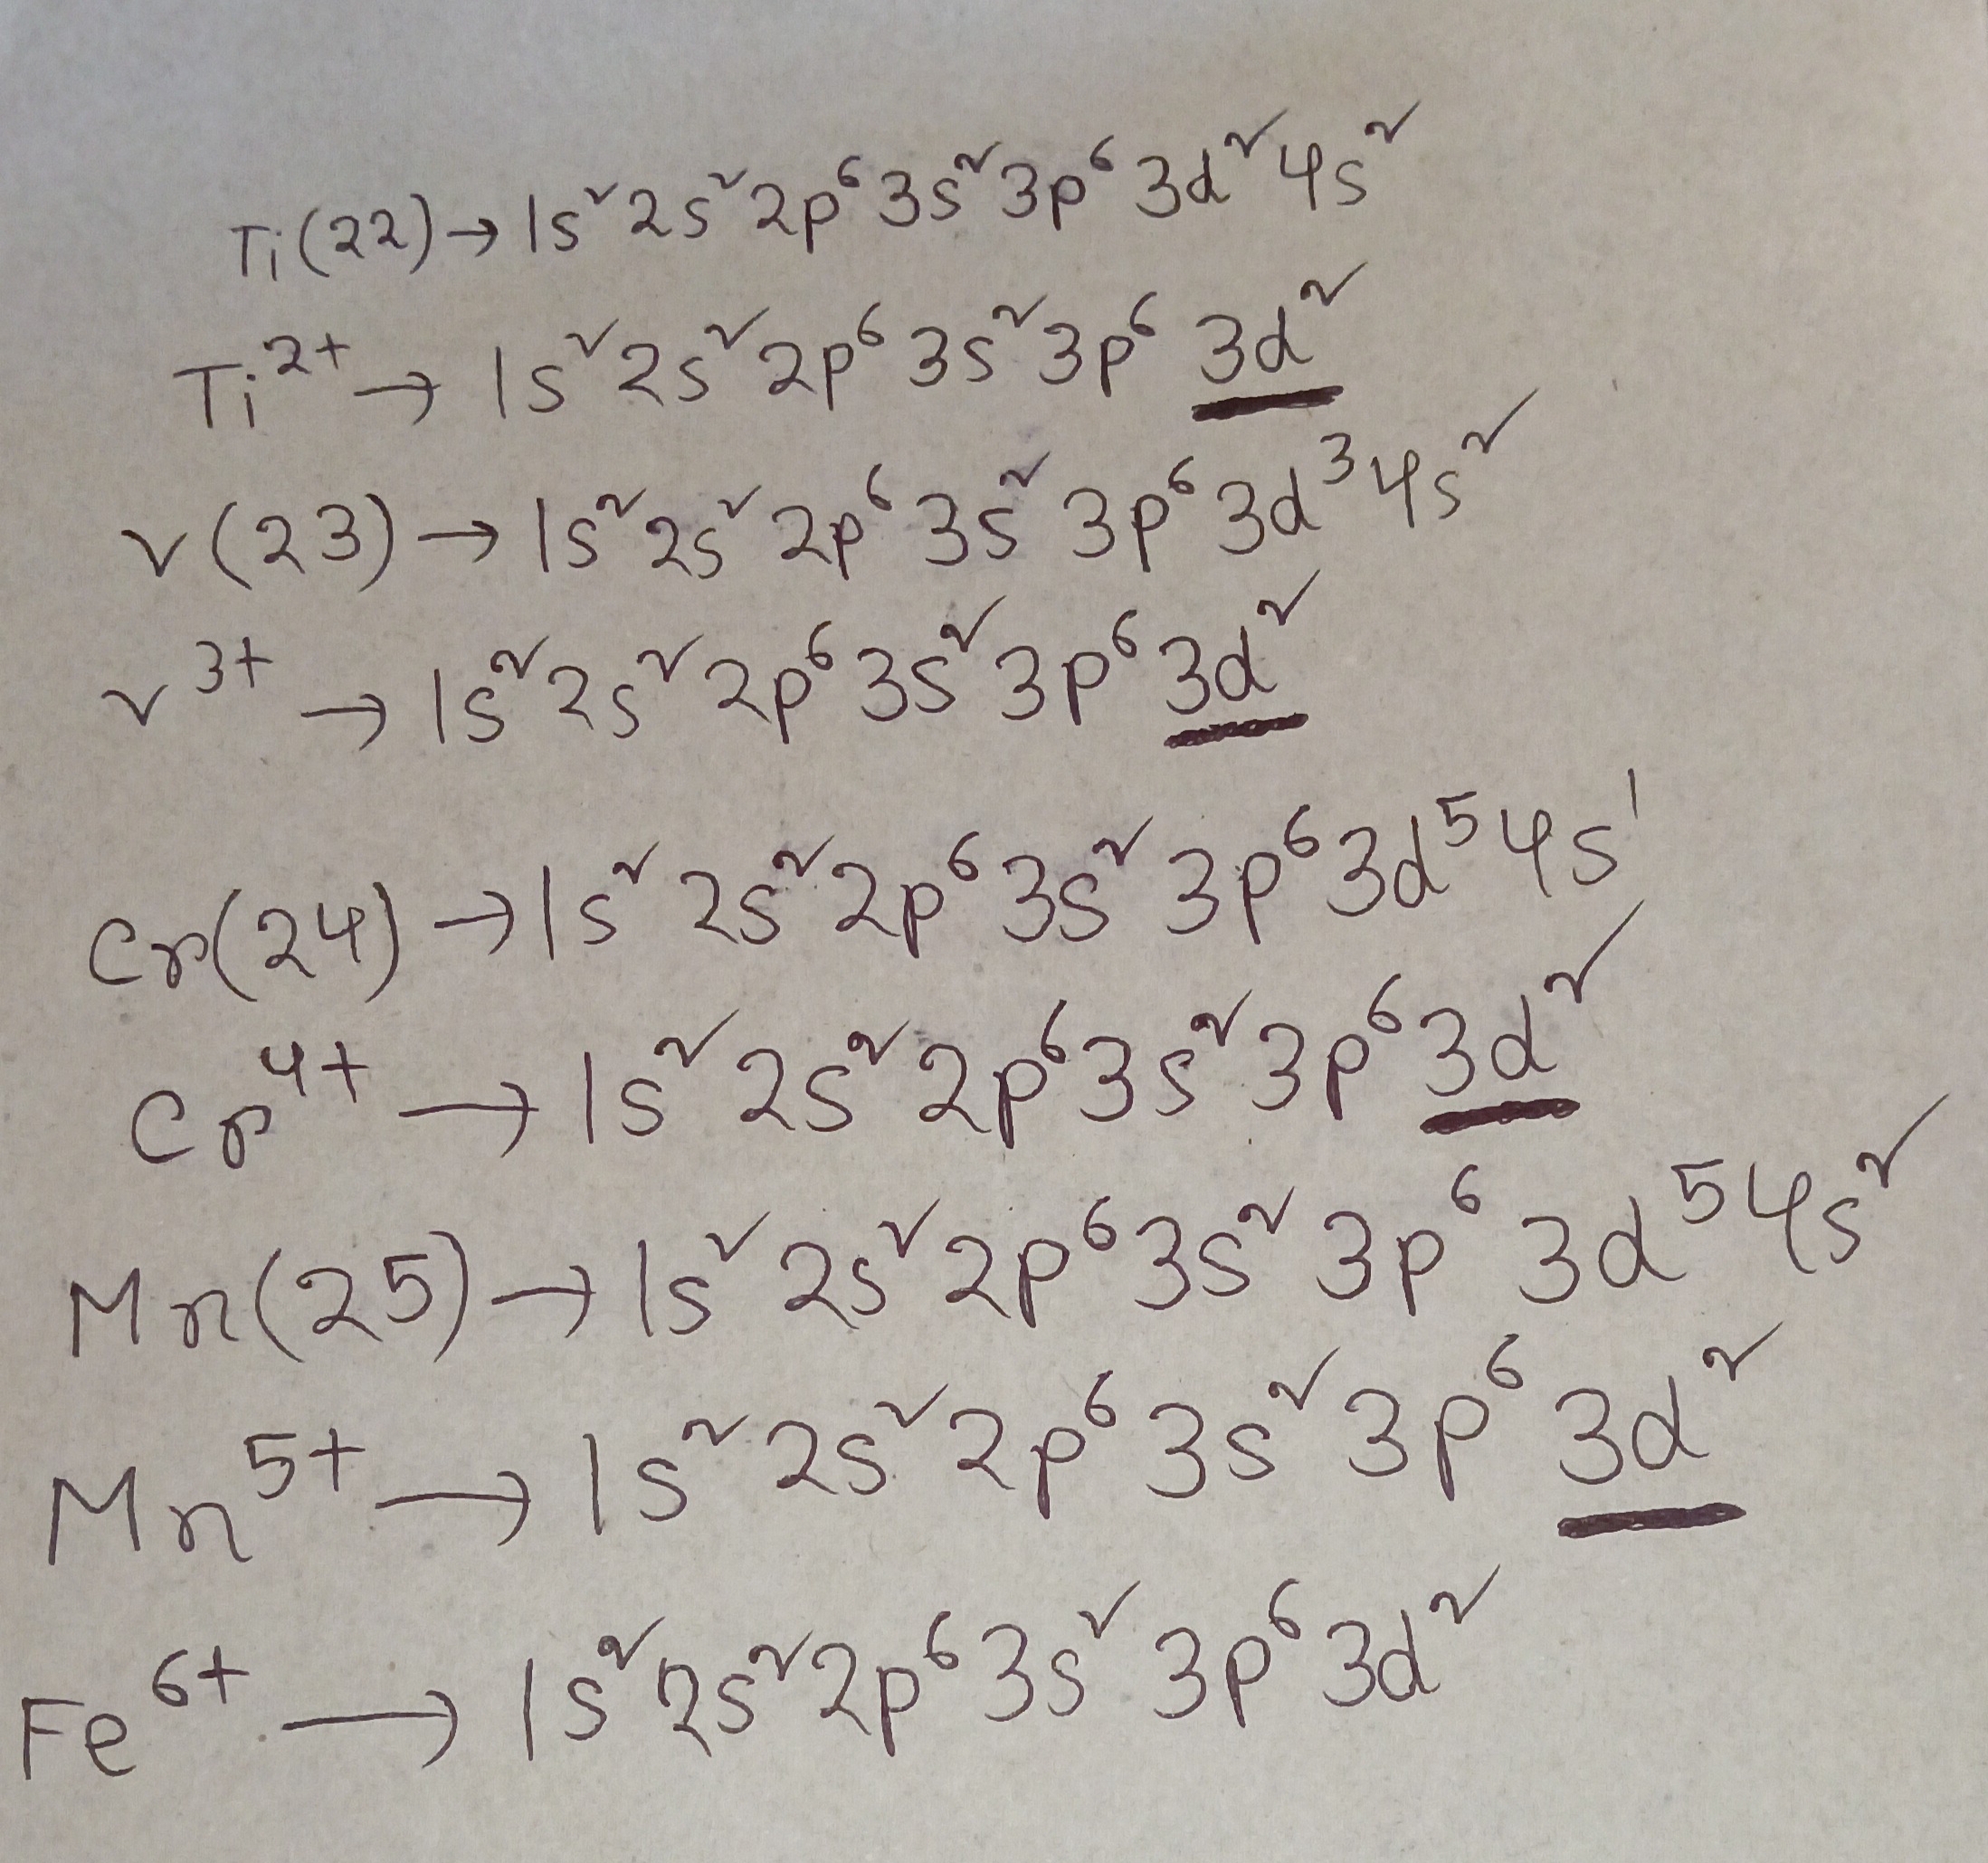 Ti(22)→1s²2s²2p⁶3s²3p⁶3d²4s²
Ti²⁺→1s²2s²2p⁶3s²3p⁶3d²
V(23)→1s²2s²2p⁶3s²3p⁶3d³4s²
V³⁺→1s²2s²2p⁶3s²3p⁶3d²
Cr(24)→1s²2s²2p⁶3s²3p⁶3d⁵4s¹
Cr⁴⁺→1s²2s²2p⁶3s²3p⁶3d²
Mn(25)→1s²2s²2p⁶3s²3p⁶3d⁵4s²
Mn⁵⁺→1s²2s²2p⁶3s²3p⁶3d²
Fe⁶⁺→1s²2s²2p⁶3s²3p⁶3d²